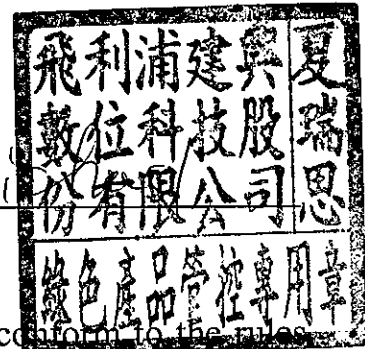 飛利浦建興
數位科技股
份有限公司
夏瑞思
綠色產品管控專用章
conform to the rules